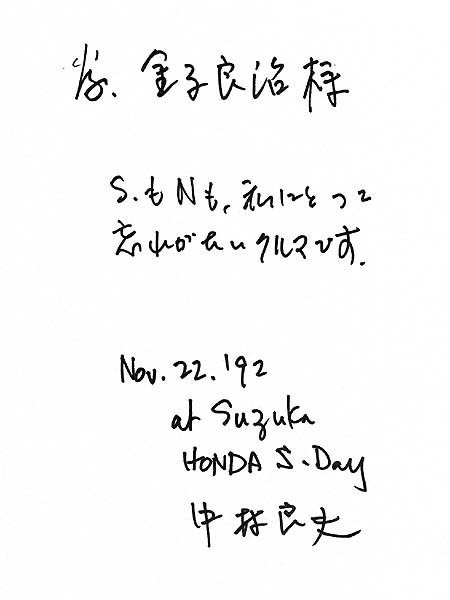 為. 金子良治様
S.もNも、私にとって
忘れがたいクルマです.
Nov. 22. '92
at Suzuka
HONDA S.Day
中村良夫